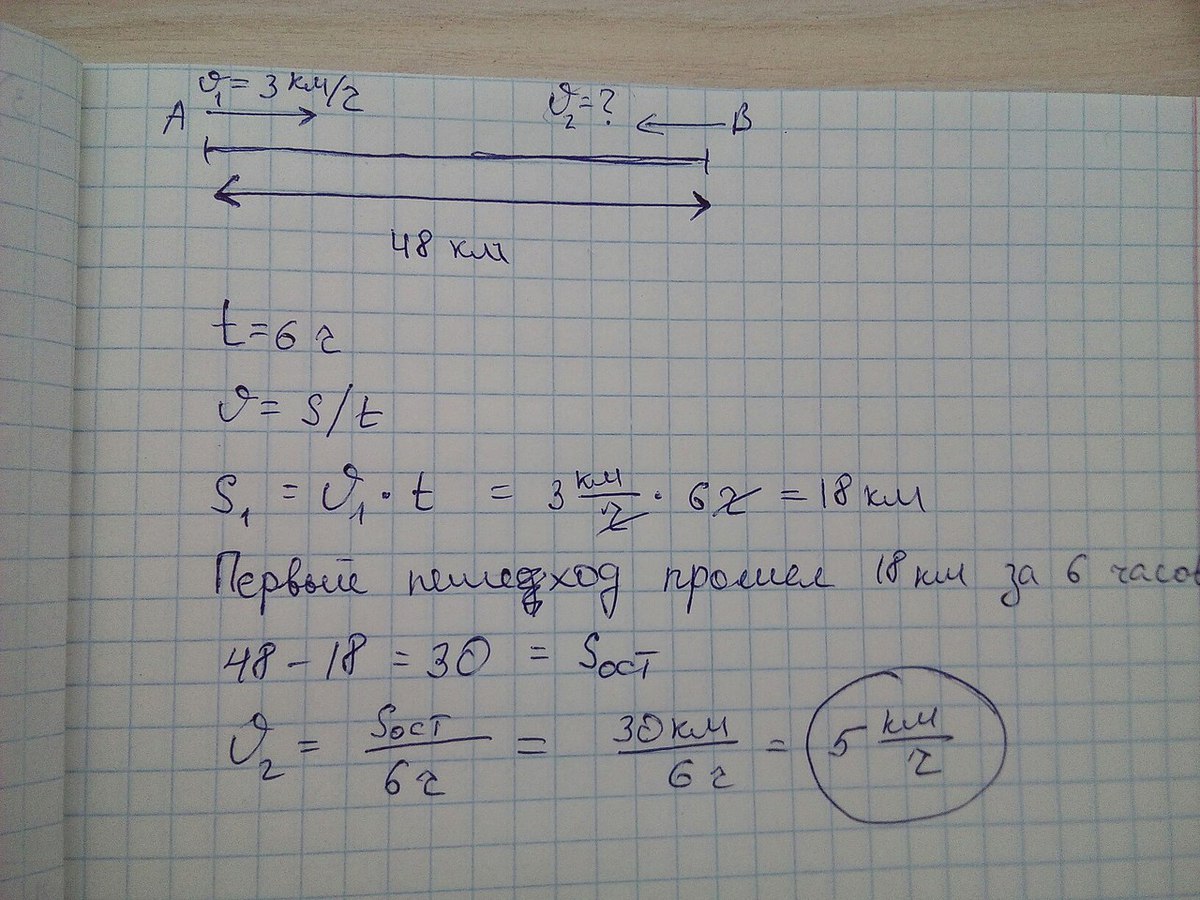 𝜗₁ = 3 км/ч
𝜗₂ = ?
A
B
48 км
t = 6 ч
𝜗 = S/t
S₁ = 𝜗₁ · t = 3 км/ч · 6 ч = 18 км
Первый пешеход прошел 18 км за 6 часов
48 - 18 = 30 = Sост
𝜗₂ = Sост/6 ч = 30 км/6 ч = 5 км/ч